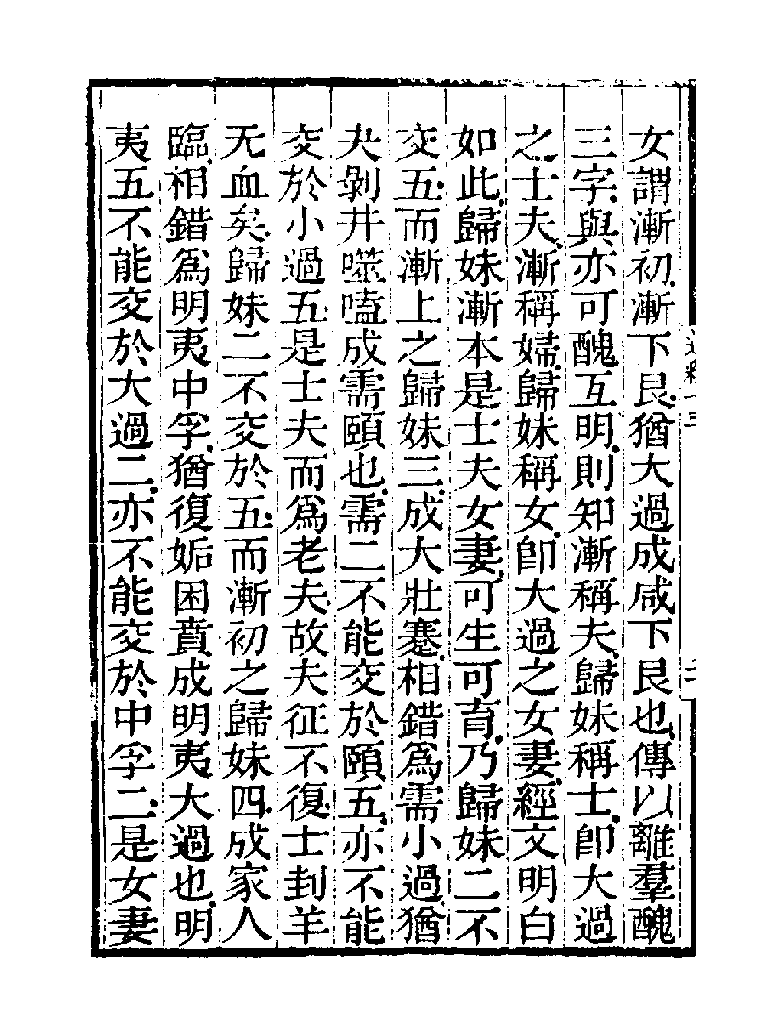 女謂漸初漸下艮猶大過成咸下艮也傳以離羣醜
三字與亦可醜互明則知漸稱夫歸妹稱士卽大過
之士夫漸稱婦歸妹稱女卽大過之女妻經文明白
如此歸妹漸本是士夫女妻可生可育乃歸妹二不
交五而漸上之歸妹三成大壯蹇相錯爲需小過猶
夬剝井噬嗑成需頤也需二不能交於頤五亦不能
交於小過五是士夫而爲老夫故夫征不復士刲羊
无血矣歸妹二不交於五而漸初之歸妹四成家人
臨相錯爲明夷中孚猶復姤困賁成明夷大過也明
夷五不能交於大過二亦不能交於中孚二是女妻